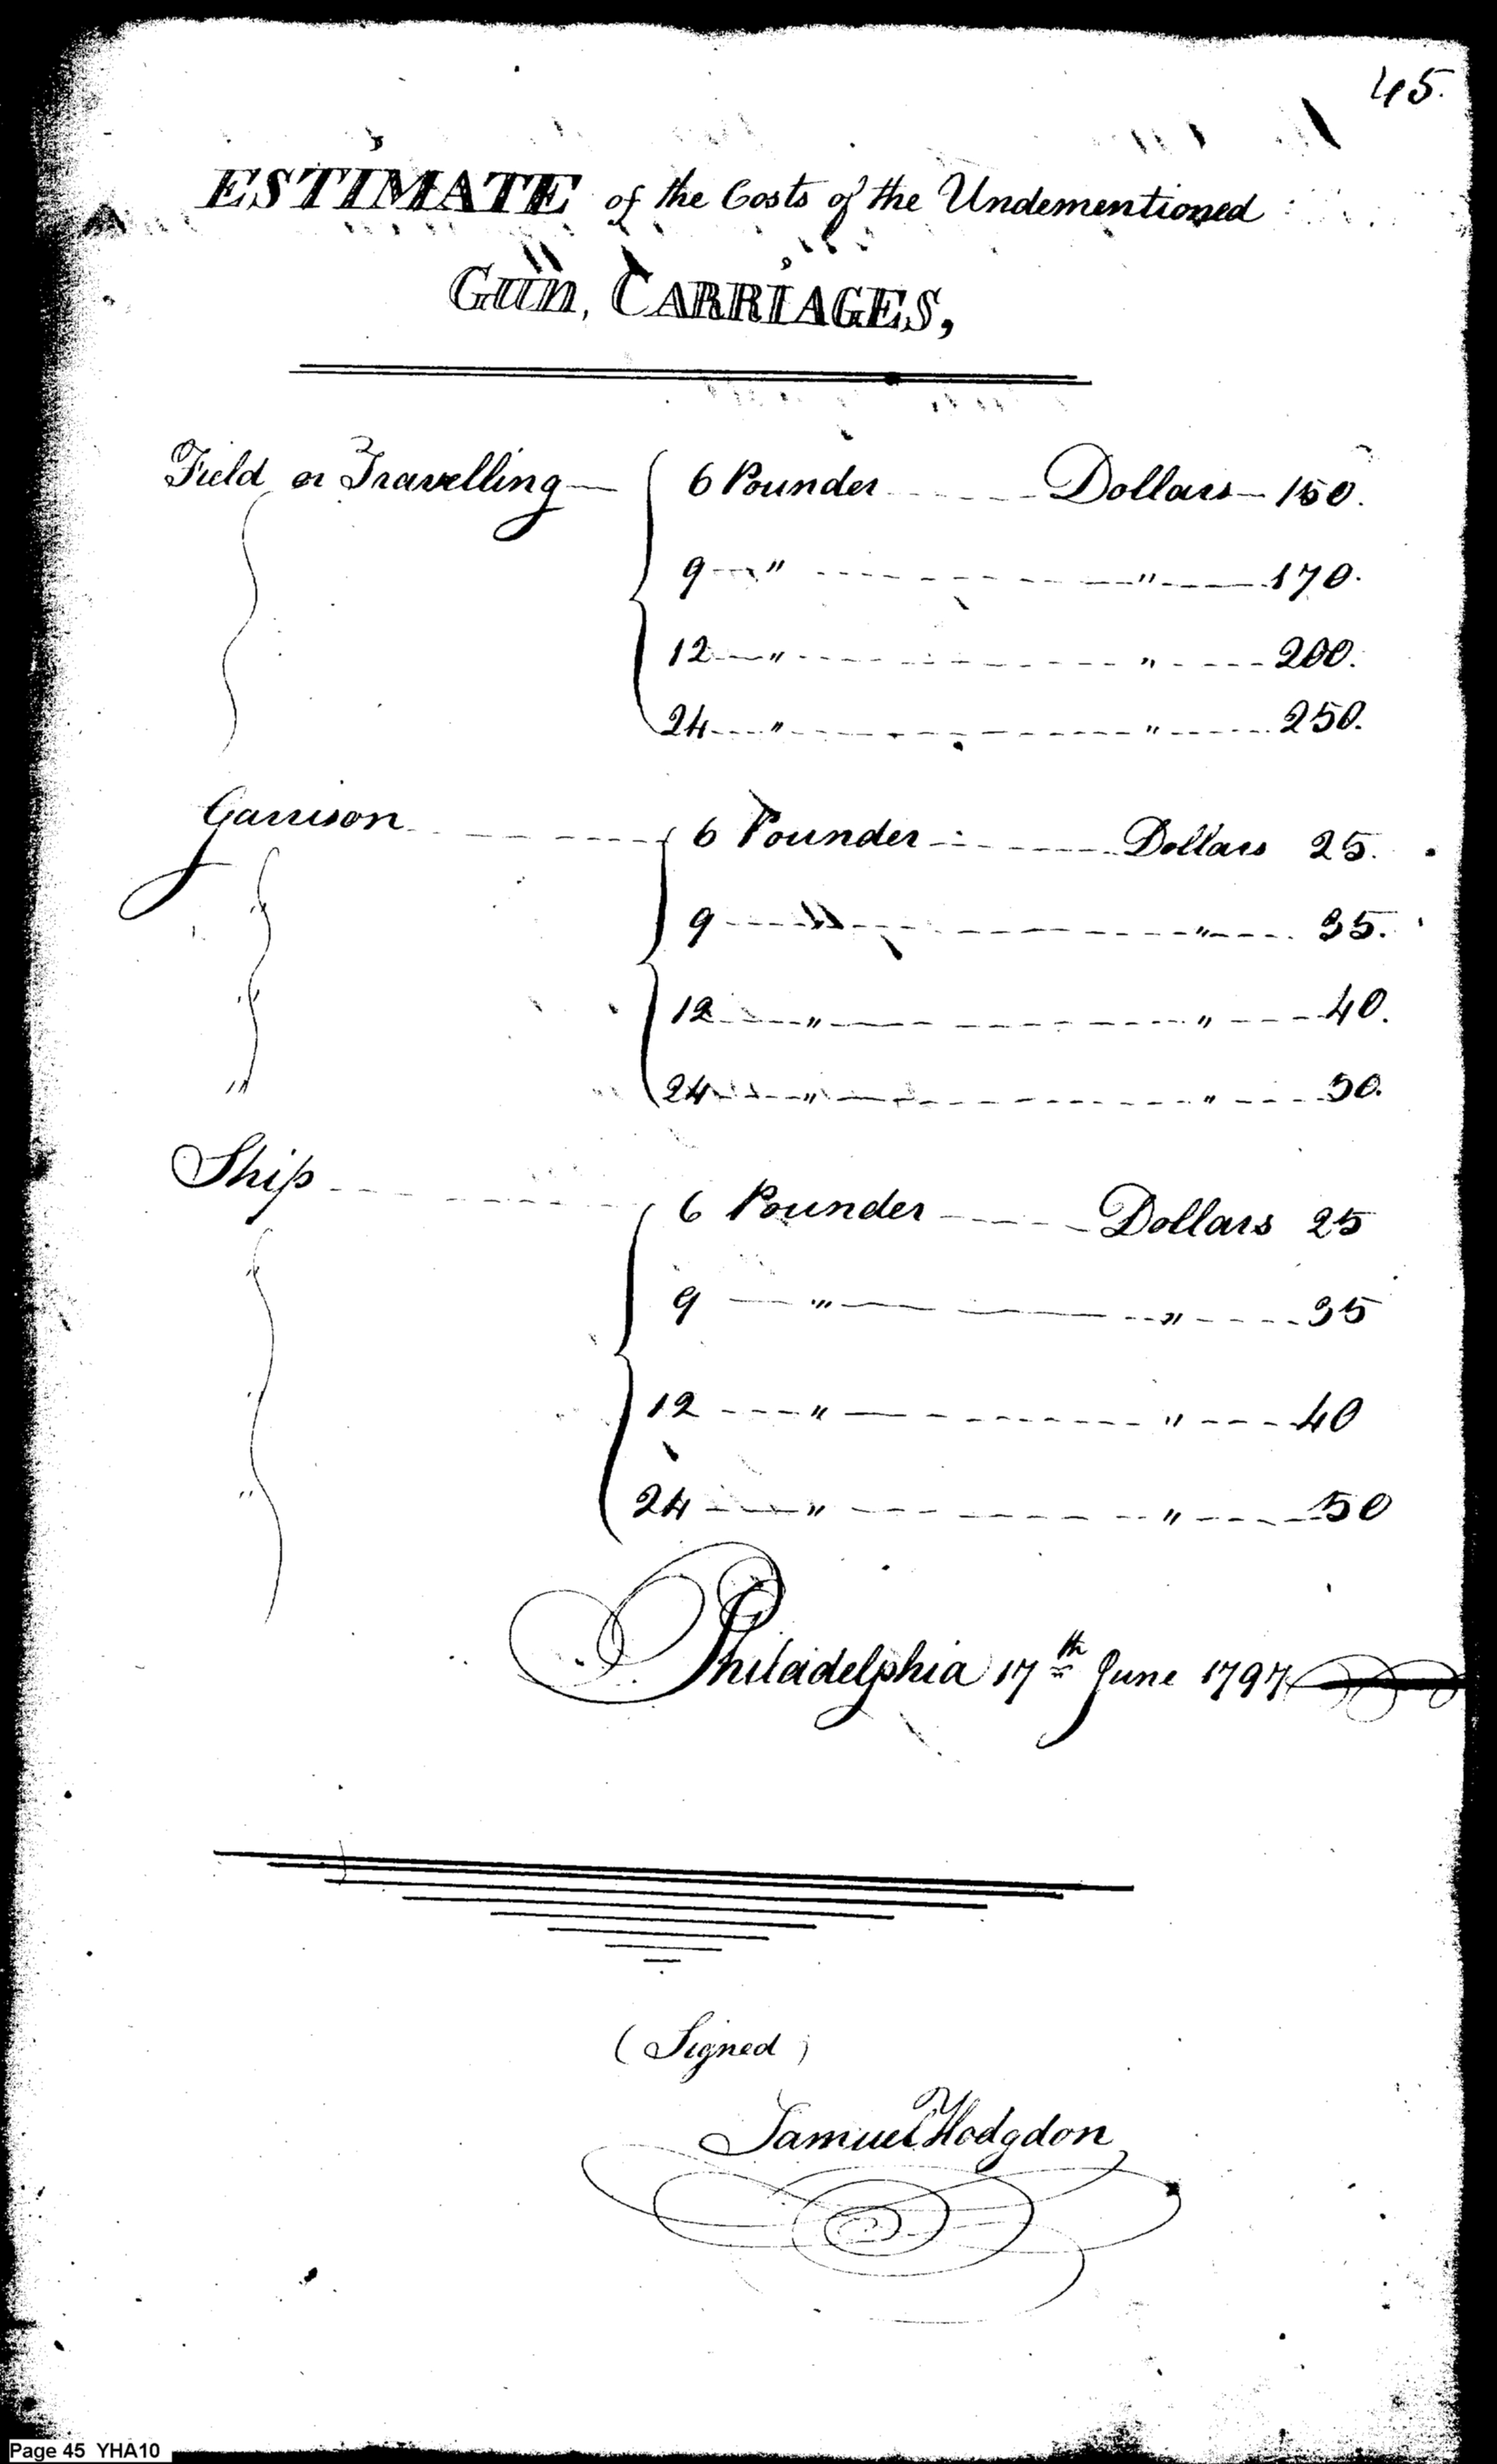 45.
ESTIMATE of the Costs of the Undementioned
Gun, CARRIAGES,
Field or Travelling — 6 Pounder ---- Dollars — 150.
9 — " ---- " ---- 170.
12 — " ---- " ---- 200.
24 ---- " ---- " ---- 250.
Garrison ---- 6 Pounder ---- Dollars 25.
" 9 ---- " ---- " ---- 35.
" 12 ---- " ---- " ---- 40.
" 24 ---- " ---- " ---- 50.
Ship ---- 6 Pounder ---- Dollars 25
" 9 — " ---- " ---- 35
" 12 ---- " ---- " ---- 40
" 24 ---- " ---- " ---- 50
Philadelphia 17th June 1797
(Signed)
Samuel Hodgdon
Page 45 YHA10